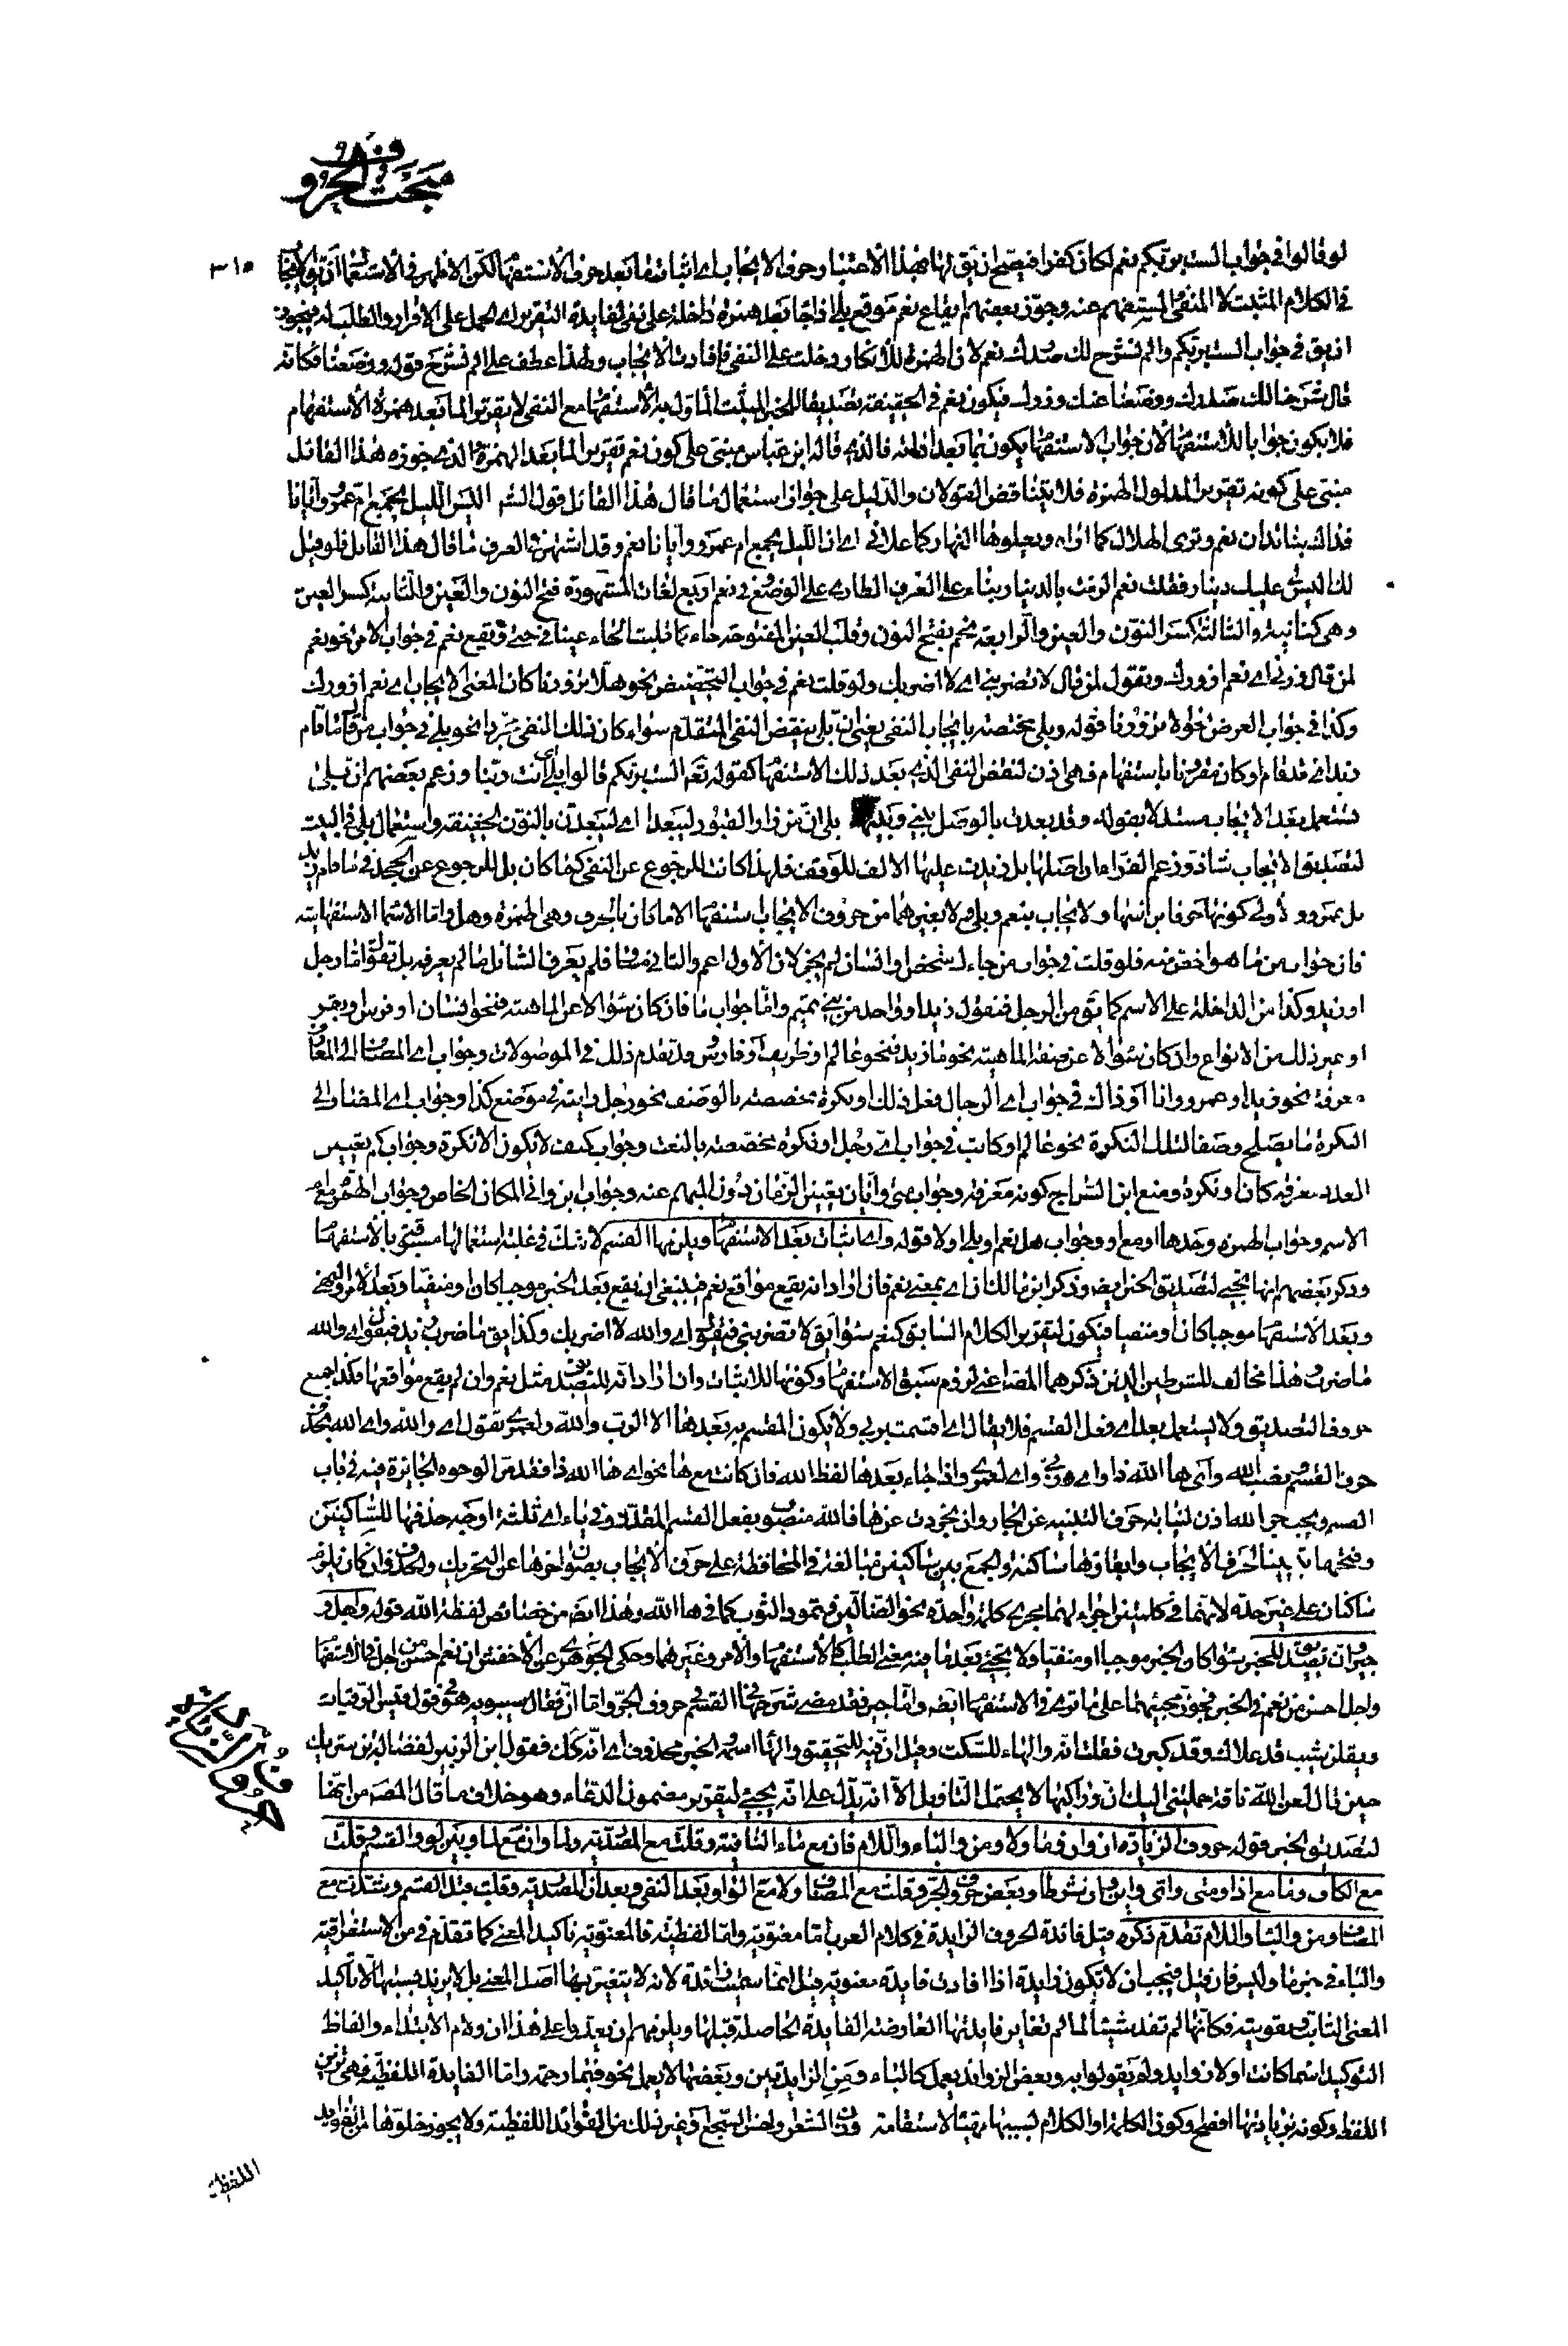 مبحث الحروف
٣١٥
لو قالوا فى جواب الست بربكم نعم لكان كفرا فيصح ان يق لها بهذا الاعتبار حرف الايجاب اى اثبات ما بعد حرف الاستفهام لكن الاظهر فى الاستعمال
فى الكلام المثبت لا المنفى المستفهم عنه وجوز بعضهم ايقاع نعم موقع بلى اذا جاء بعد همزة داخلة على نفى لفايدة التقرير اى الحمل على الاقرار والطلب له فيجوز
ان يق فى جواب الست بربكم والم نشرح لك صدرك نعم لان الهمزة للانكار دخلت على النفى فافادت الايجاب ولهذا عطف على الم نشرح قوله ووضعنا فكانه
قال شرحنا لك صدرك ووضعنا عنك وزرك فيكون نعم فى الحقيقة تصديقا للخبر المثبت الماول به الاستفهام مع النفى لا تقريرا لما بعد همزة الاستفهام
فلا يكون جوابا للاستفهام لان جواب الاستفهام يكون بما بعد اداته فالذى قاله ابن عباس مبنى على كون نعم تقريرا لما بعد الهمزة والذى جوزه هذا القائل
مبنى على كونه تقريرا لمدلول الهمزة فلا يتناقض القولان والدليل على جواز استعمال ما قال هذا القائل قول الشه اليس الليل يجمع ام عمرو وايانا
فذاك بنا تدان نعم وترى الهلال كما اراه ويعلوها النهار كما علانى اى ان الليل يجمع ام عمرو وايانا نعم وقد اشتهر فى العرف ما قال هذا القايل فلو قيل
لك اليس عليك دينار فقلت نعم لزمت بالدينار بناء على العرف الطارى على الوضع فى نعم اربع لغات المشهورة فتح النون والعين والثانية كسر العين
وهى كنانية والثالثة كسر النون والعين والرابعة نحم بفتح النون وقلب العين المفتوحة حاء كما قلبت الحاء عينا فى حتى ويقع نعم فى جواب الامر نحو نعم
لمن قال زرنى اى نعم ازورك وتقول لمن قال لا تضربنى اى لا اضربك ولو قلت نعم فى جواب التحضيض نحو هلا تزورنا كان المعنى الايجاب اى نعم ازورك
وكذا فى جواب العرض نحو الا تزورنا قوله وبلى مختصة بايجاب النفى يعنى ان بلى ينقض النفى المتقدم سواء كان ذلك النفى مجردا نحو بلى فى جواب من قال ما قام
زيد اى قد قام او كان مقرونا باستفهام فهى اذن لنقض النفى الذى بعد ذلك الاستفهام كقوله تعه الست بربكم قالوا بلى اى انت ربنا وزعم بعضهم ان بلى
تستعمل بعد الايجاب مستدلا بقوله وقد بعدت بالوصل بينى وبينها بلى ان من زار القبور ليبعدا اى ليبعدن بالنون الخفيفة واستعمال بلى فى البيت
لتصديق الايجاب شاذ وزعم الفراء ان اصلها بل زيدت عليها الالف للوقف فلهذا كانت للرجوع عن النفى كما كان بل للرجوع عن الجحد فى ما قام زيد
بل عمرو والاولى كونها حرفا براسها ولا يجاب بنعم وبلى ولا بغيرهما من حروف الايجاب استفهام الا ما كان بالحرف وهى الهمزة وهل واما الاسماء الاستفهامية
فان جواب من ما هو اخص منه فلو قلت فى جواب من جاءك شخص او انسان لم يجز لان الاول اعم والثانى مساو فلم يعرف السائل ما لم يعرفه بل تقول اما رجل
او زيد وكذا من الداخلة على الاسم كما يق من الرجل فتقول زيد او واحد من بنى تميم واما جواب ما فان كان سؤالا عن الماهية فنحو انسان او فرس او بقر
او غير ذلك من الانواع وان كان سؤالا عن صفة الماهية نحو ما زيد فنحو عالم او ظريف او فارس وقد تقدم ذلك فى الموصولات وجواب اى المضاف الى المعارف
معرفة نحو زيد او عمرو وانا او ذاك فى جواب اى الرجال فعل ذلك او نكرة مخصصة بالوصف نحو رجل رايته فى موضع كذا وجواب اى المضاف الى
النكرة ما يصلح وصفا لتلك النكرة نحو عالم او كاتب فى جواب اى رجل او نكرة مخصصة بالنعت وجواب كيف لا يكون الا نكرة وجواب كم تعيين
العدد معرفة كان او نكرة ومنع ابن السراج كونه معرفة وجواب متى وايان تعيين الزمان دون المبهم عنه وجواب اين وانى المكان الخاص وجواب الهمزة مع ام
الاسم وجواب الهمزة وحدها او مع او وجواب هل نعم او بلى او لا قوله واى اثبات بعد الاستفهام ويلزمها القسم لا شك فى غلبة استعمالها مسبوقة بالاستفهام
وذكر بعضهم انها تجيئ لتصديق الخبر ايضه وذكر ابن مالك ان اى بمعنى نعم فان اراد انه يقع مواقع نعم فينبغى ان يقع بعد الخبر موجبا كان او منفيا وبعد الامر والنهى
وبعد الاستفهام موجبا كان او منفيا فيكون لتقرير الكلام السابق كنعم سواء يق لا تضربنى فتقول اى والله لا اضربك وكذا يق ما ضرب زيد فتقول اى والله
ما ضرب هذا مخالف للشرطين الذين ذكرهما المصه اعنى لزوم سبق الاستفهام وكونها للاثبات وان اراد انه للتصديق مثل نعم وان لم يقع مواقعها فكذا جميع
حروف التصديق ولا يستعمل بعد اى فعل القسم فلا يقال اى اقسمت بربى ولا يكون المقسم به بعدها الا الرب والله ولعمرى تقول اى والله واى الله بحذف
حرف القسم ونصب الله واى ها الله ذا واى وربى واى لعمرى واذا جاء بعدها لفظ الله فان كانت مع ها نحو اى ها الله ذا فقد مر الوجوه الجايزة فيه فى باب
القسم ويجب جر الله اذن لنيابة حرف التنبيه عن الجار وان تجردت عن ها فالله منصوب بفعل القسم المقدر وفى ياء اى ثلثة اوجه حذفها للساكنين
وفتحها تبيينا لحرف الايجاب وابقاؤها ساكنة والجمع بين ساكنين مبالغة فى المحافظة على حرف الايجاب بصون اخرها عن التحريك والحذف وان كان يلزم
ساكنان على غير حده لانهما فى كلمتين اجراء لهما مجرى كلمة واحدة نحو الضالين وتمود الثوب كما فى ها الله وهذا ايضه من خصائص لفظة الله قوله واجل و
جير وان تصديق للمخبر سواء كان الخبر موجبا او منفيا ولا تجئ بعد ما فيه معنى الطلب كالاستفهام والامر وغيرهما وحكى الجوهرى عن الاخفش ان نعم احسن من اجل فى الاستفهام
واجل احسن من نعم فى الخبر فجوز مجيئهما على ما ترى فى الاستفهام ايضه واما جير فقد مضى شرحها فى القسم فى حروف الجر واما ان فقال سيبويه هى فى قول قيس الرقيات
ويقلن شيب قد علاك وقد كبرت فقلت انه والهاء للسكت وقيل ان فيه للتحقيق والهاء اسمه والخبر محذوف اى انه كذلك فقول ابن الزبير لفضالة بن شريك
حين قال لعن الله ناقة حملتنى اليك ان وراكبها لا يحتمل التاويل الا انه يدل على انه يجيئ لتقرير مضمون الدعاء وهو خلاف ما قال المصه من انها
لتصديق الخبر قوله حروف الزيادة ان وان وما ولا ومن والباء واللام فان مع ماء النافية وقلت مع المصدرية ولما وان مع لما وبين لو والقسم وقلت
مع الكاف وما مع اذا ومتى واى واين وان شرطا وبعض حروف الجر وقلت مع المضاف ولا مع الواو بعد النفى وبعد ان المصدرية وقلت قبل القسم وشذت مع
المضاف ومن والباء واللام تقدم ذكره قيل فائدة الحروف الزايدة فى كلام العرب اما معنوية واما لفظية فالمعنوية تاكيد المعنى كما تقدم فى من الاستغراقية
والباء فى خبر ما وليس فان قيل فيجب ان لا تكون زايدة اذا افادت فايدة معنوية قيل انما سميت زايدة لانه لا يتغير بها اصل المعنى بل لا يزيد بسببها الا تاكيد
المعنى الثابت وتقويته فكانها لم تفد شيئا لما لم تغاير فايدتها العارضة الفايدة الحاصلة قبلها ويلزمهم ان يعدوا على هذا ان ولام الابتداء والفاظ
التوكيد اسما كانت او لا زوايد ولم يقولوا به وبعض الزوايد يعمل كالباء ومن الزايدتين وبعضها لا يعمل نحو فبما رحمة واما الفايدة اللفظية فهى تزيين
اللفظ وكونه بزيادتها افصح وكون الكلمة او الكلام بسببها مهيئا لاستقامة وزن الشعر ولحسن السجع او غير ذلك من الفوائد اللفظية ولا يجوز خلوها من الفوايد
حروف الزيادة
اللفظية